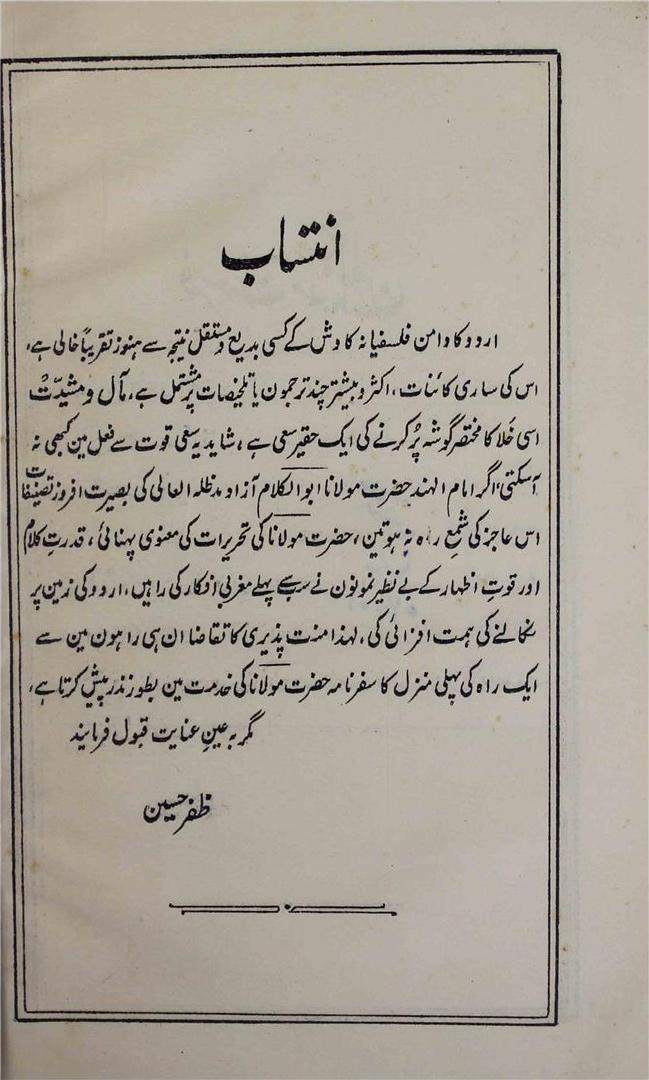 انتساب
اردو کا دامن فلسفیانہ کاوش کے کسی بدیع و مستقل نتیجہ سے ہنوز تقریباً خالی ہے،
اس کی ساری کائنات، اکثر و بیشتر چند ترجمون یا تلخیصات پر مشتمل ہے، مآل و مشیّت
اسی خلا کا مختصر گوشہ پُر کرنے کی ایک حقیر سعی ہے، شاید یہ سعی قوت سے فعل مین کبھی نہ
آسکتی، اگر امام الہند حضرت مولانا ابوالکلام آزاد مدظلہ العالی کی بصیرت افروز تصنیفات
اس عاجز کی شمعِ راہ نہ ہوتین، حضرت مولانا کی تحریرات کی معنوی پہنائی، قدرتِ کلام
اور قوتِ اظہار کے بے نظیر نمونون نے سب سے پہلے مغربی افکار کی راہیں، اردو کی زمین پر
نکالنے کی ہمت افزائی کی، لہذا منت پذیری کا تقاضا ان ہی راہون مین سے
ایک راہ کی پہلی منزل کا سفرنامہ حضرت مولانا کی خدمت مین بطور نذر پیش کرتا ہے،
گر بہ عینِ عنایت قبول فرمایند
ظفر حسین